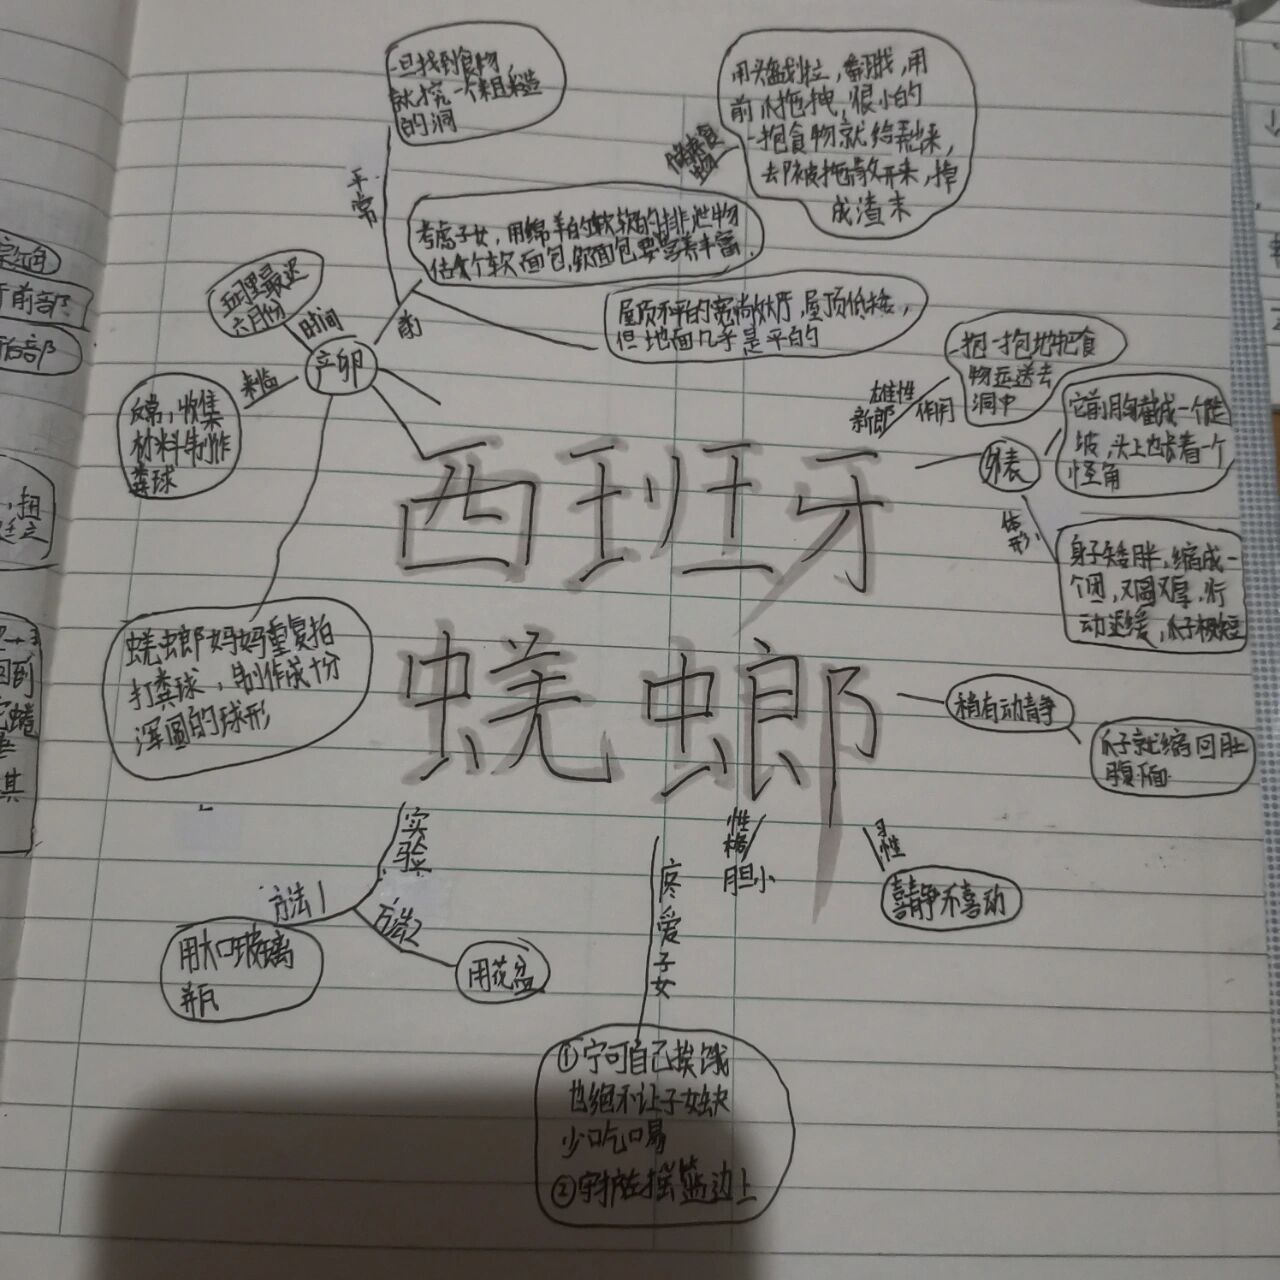 一旦找到食物
就挖一个粗糙
的洞
平常
用头盔划拉,翻戳,用
前爪拖拽,很小的
一抱食物就给弄出来,
去即被拖散开来,掉
成渣末
储存食
物
考虑子女,用绵羊的软软的排泄物
估个软面包,软面包要营养丰富.
屋顶不平的宽敞大厅,屋顶低矮,
但地面几乎是平的
五月里最迟
六月份
时间
产卵
来临
反常,收集
材料制作
粪球
雄性
新郎
作用
一抱一抱地把食
物运送去
洞中
外表
它前胸截成一个陡
坡,头上也长着一个
怪角
体形
身子矮胖,缩成一
个团,又圆又厚,行
动迟缓,爪子极短
西班牙
蜣螂
蜣螂妈妈重复拍
打粪球,制作成十分
浑圆的球形
稍有动静
爪子就缩回肚
腹下面
实验
方法1
用大口玻璃
瓶
方法2
用花盆
疼爱子女
性格
胆小
习性
喜静不喜动
①宁可自己挨饿
也绝不让子女缺
少吃喝
②守护在摇篮边上
前部
后部
回到
其